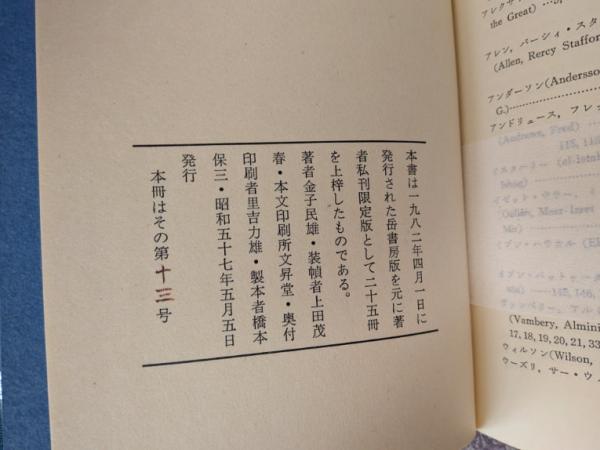 本書は一九八二年四月一日に
発行された岳書房版を元に著
者私刊限定版として二十五冊
を上梓したものである。
著者金子民雄・装幀者上田茂
春・本文印刷所文昇堂・奥付
印刷者里吉力雄・製本者橋本
保三・昭和五十七年五月五日
発行
本冊はその第十三号
アレクサ
the Great)
アレン, パーシィ・スタ
(Allen, Rercy Staffor
アンダーソン(Andersso
G.)
アンドリュース, フレッ
(Andrews, Fred)
115, 116,
イスターリー (el-Istakh
イゼット・
イブン・ハウカル (El
イブン・バットゥータ
145, 146,
ヴァンベリー, アルミ
(Vambery, Almini
17, 18, 19, 20, 21, 33
ウィルソン(Wilson,
ウーズリ, サー・ウ